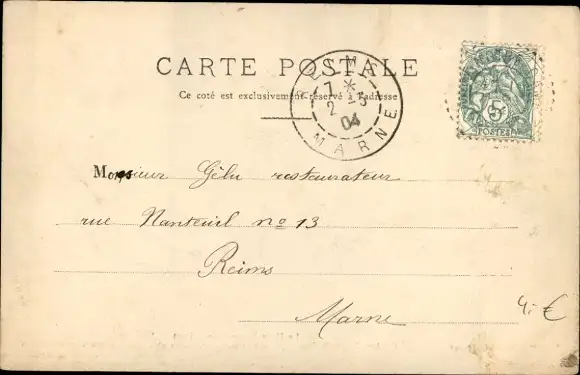 CARTE POSTALE
Ce coté est exclusivement réservé à l'adresse
REIMS
7 *
2 - 3
04
MARNE
5
POSTES
Monsieur Gélu restaurateur
rue Nanteuil no 13
Reims
Marne
4,- €